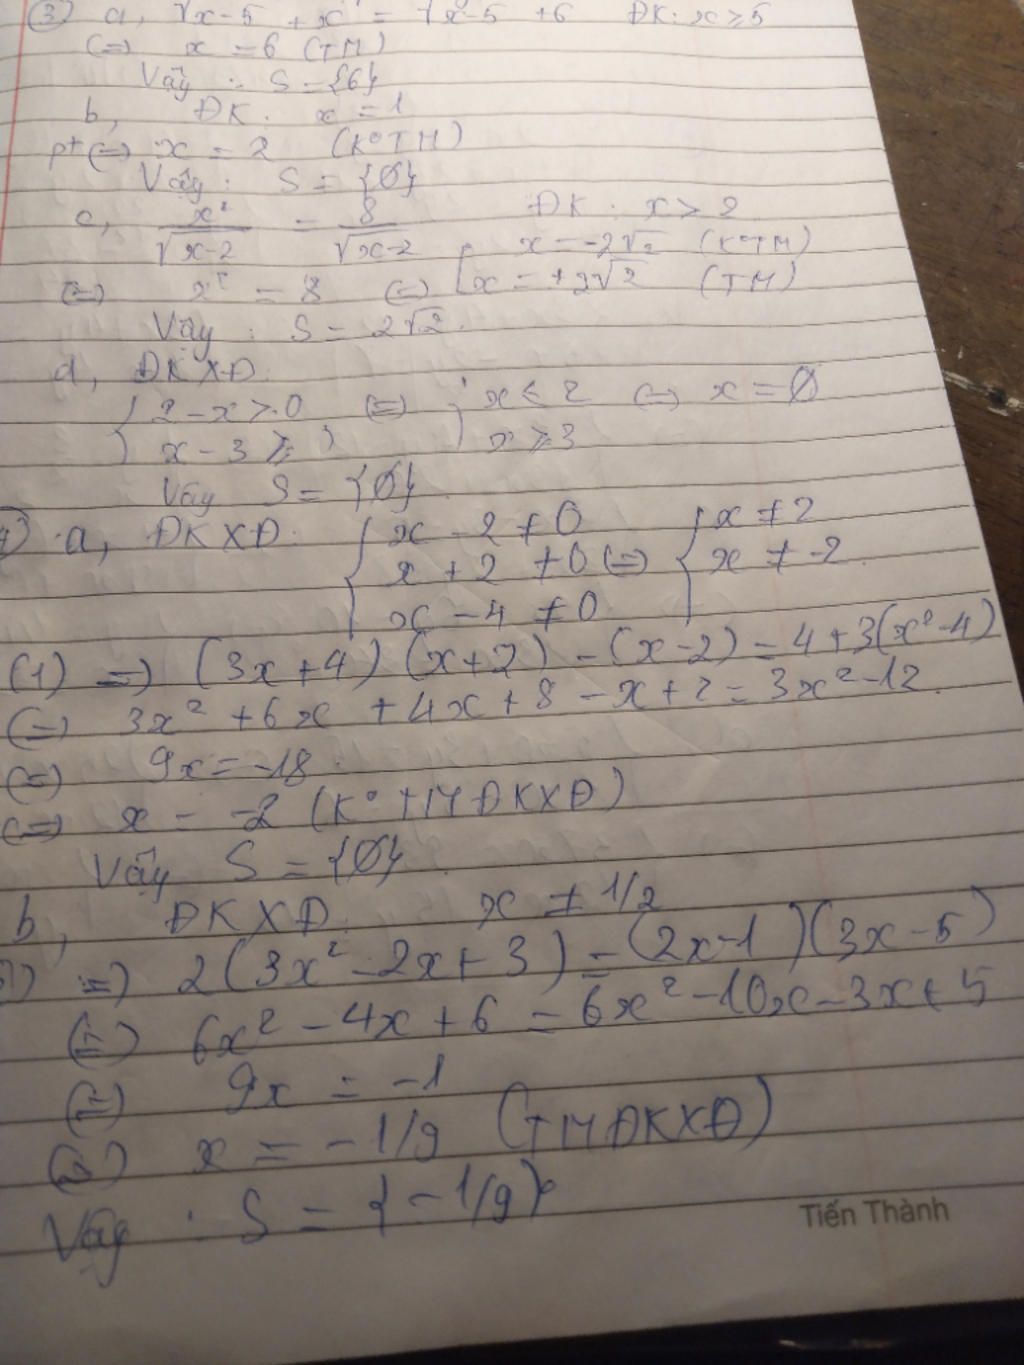 ③ a, √x-5 + x = √x-5 + 6 ĐK: x ≥ 5
(=) x = 6 (TM)
Vậy : S = {6}
b, ĐK: x = 1
pt (=) x = 2 (K°TM)
Vậy: S = {Ø}
c, x²/√x-2 = 8/√x-2 ĐK: x > 2
(=) x² = 8 (=) [ x = -2√2 (K°TM)
x = +2√2 (TM)
Vậy : S = 2√2.
d, ĐKXĐ:
{ 2-x > 0 (=) { x < 2 (=) x = Ø
x - 3 ≥ x ≥ 3
Vậy S = {Ø}
a, ĐKXĐ: { x - 2 ≠ 0 { x ≠ 2
x + 2 ≠ 0 (=) x ≠ -2
x - 4 ≠ 0
(1) =) (3x+4)(x+2) - (x-2) = 4 + 3(x²-4)
(=) 3x² + 6x + 4x + 8 - x + 2 = 3x² - 12.
(=) 9x = -18
(=) x = -2 (K° TM ĐKXĐ)
Vậy S = {Ø}
b, ĐKXĐ: x ≠ 1/2
=) 2(3x² - 2x + 3) = (2x-1)(3x-5)
(=) 6x² - 4x + 6 = 6x² - 10x - 3x + 5
(=) 9x = -1
(=) x = -1/9 (TM ĐKXĐ)
Vậy : S = {-1/9}
Tiến Thành